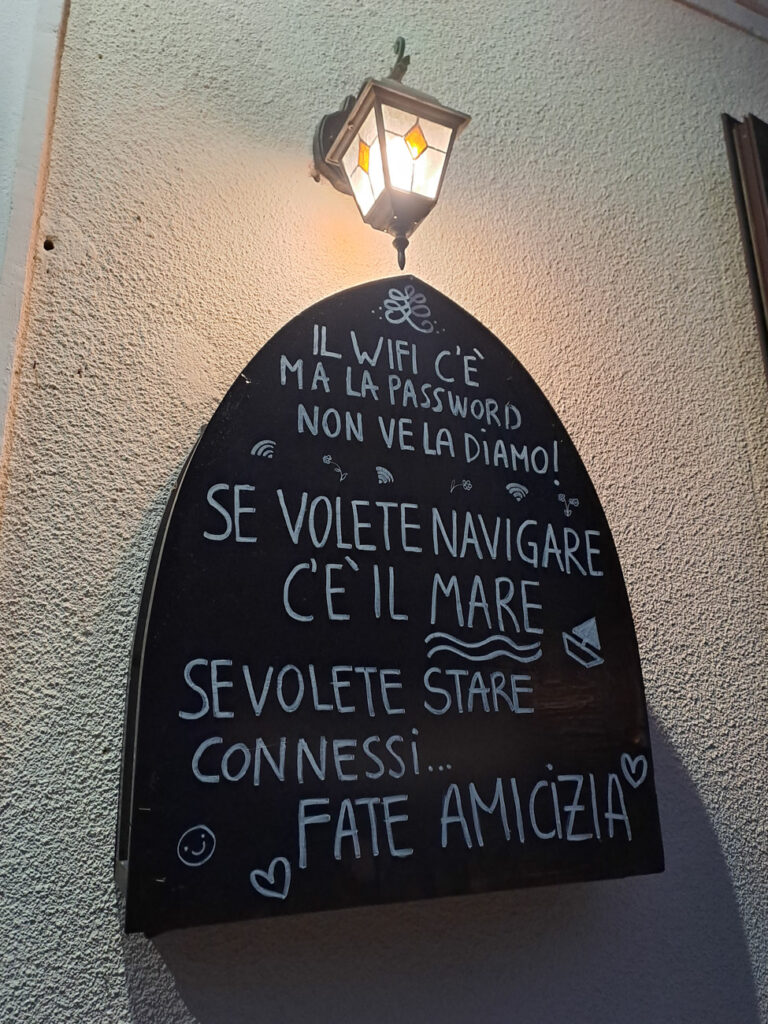 IL WIFI C'È
MA LA PASSWORD
NON VE LA DIAMO!
SE VOLETE NAVIGARE
C'È IL MARE
SE VOLETE STARE
CONNESSI...
FATE AMICIZIA